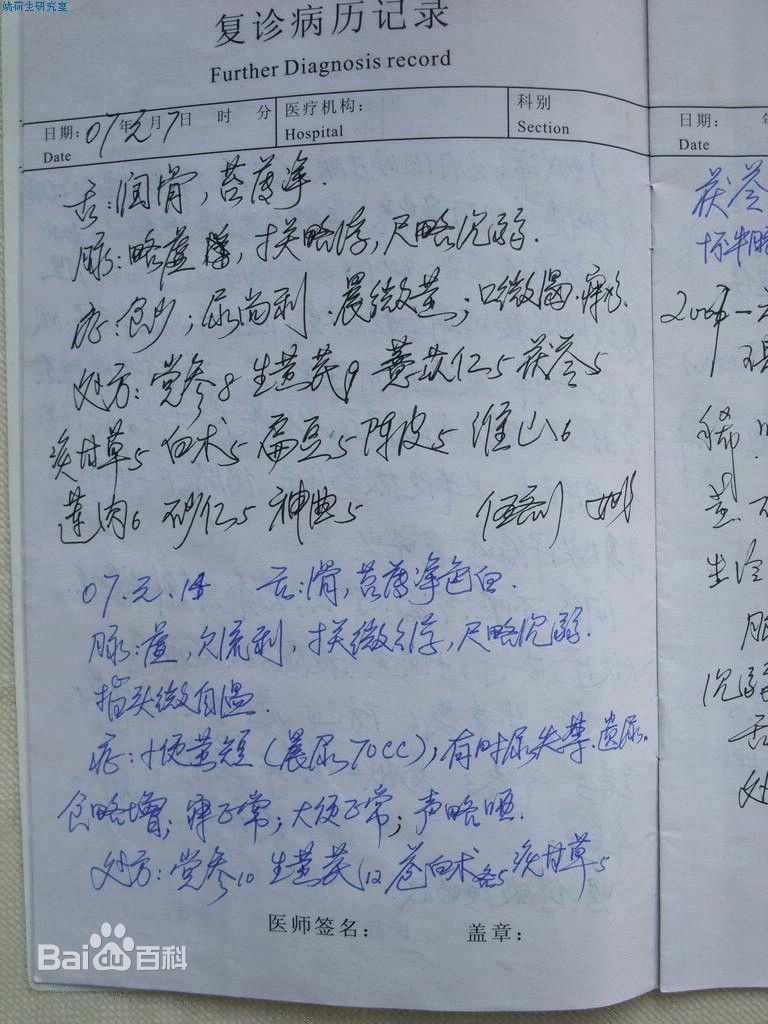 姚荷生研究室
复诊病历记录
Further Diagnosis record
日期: 07年元月7日 时 分 医疗机构: 科别
Date Hospital Section
舌:润滑,苔薄净.
脉:略虚,寸关略浮,尺略沉弱.
症:食少;尿尚利.晨微黄;口微渴.
处方:党参8 生黄芪9 薏苡仁5 茯苓5
炙甘草5 白术5 扁豆5 陈皮5 淮山6
莲肉6 砂仁5 神曲5 伍剂 姚
07.元.14 舌:滑,苔薄净色白.
脉:虚,欠流利,寸关微浮,尺略沉弱.
指头微自温.
症:小便黄短(晨尿70CC),有时尿失禁.遗尿.
食略增;寐正常;大便正常;声略哑.
处方:党参10 生黄芪12 苍白术各5 炙甘草5
医师签名: 盖章:
Bai百科
日期: 年
Date
茯苓
稀.
生冷
沉弱
舌
处